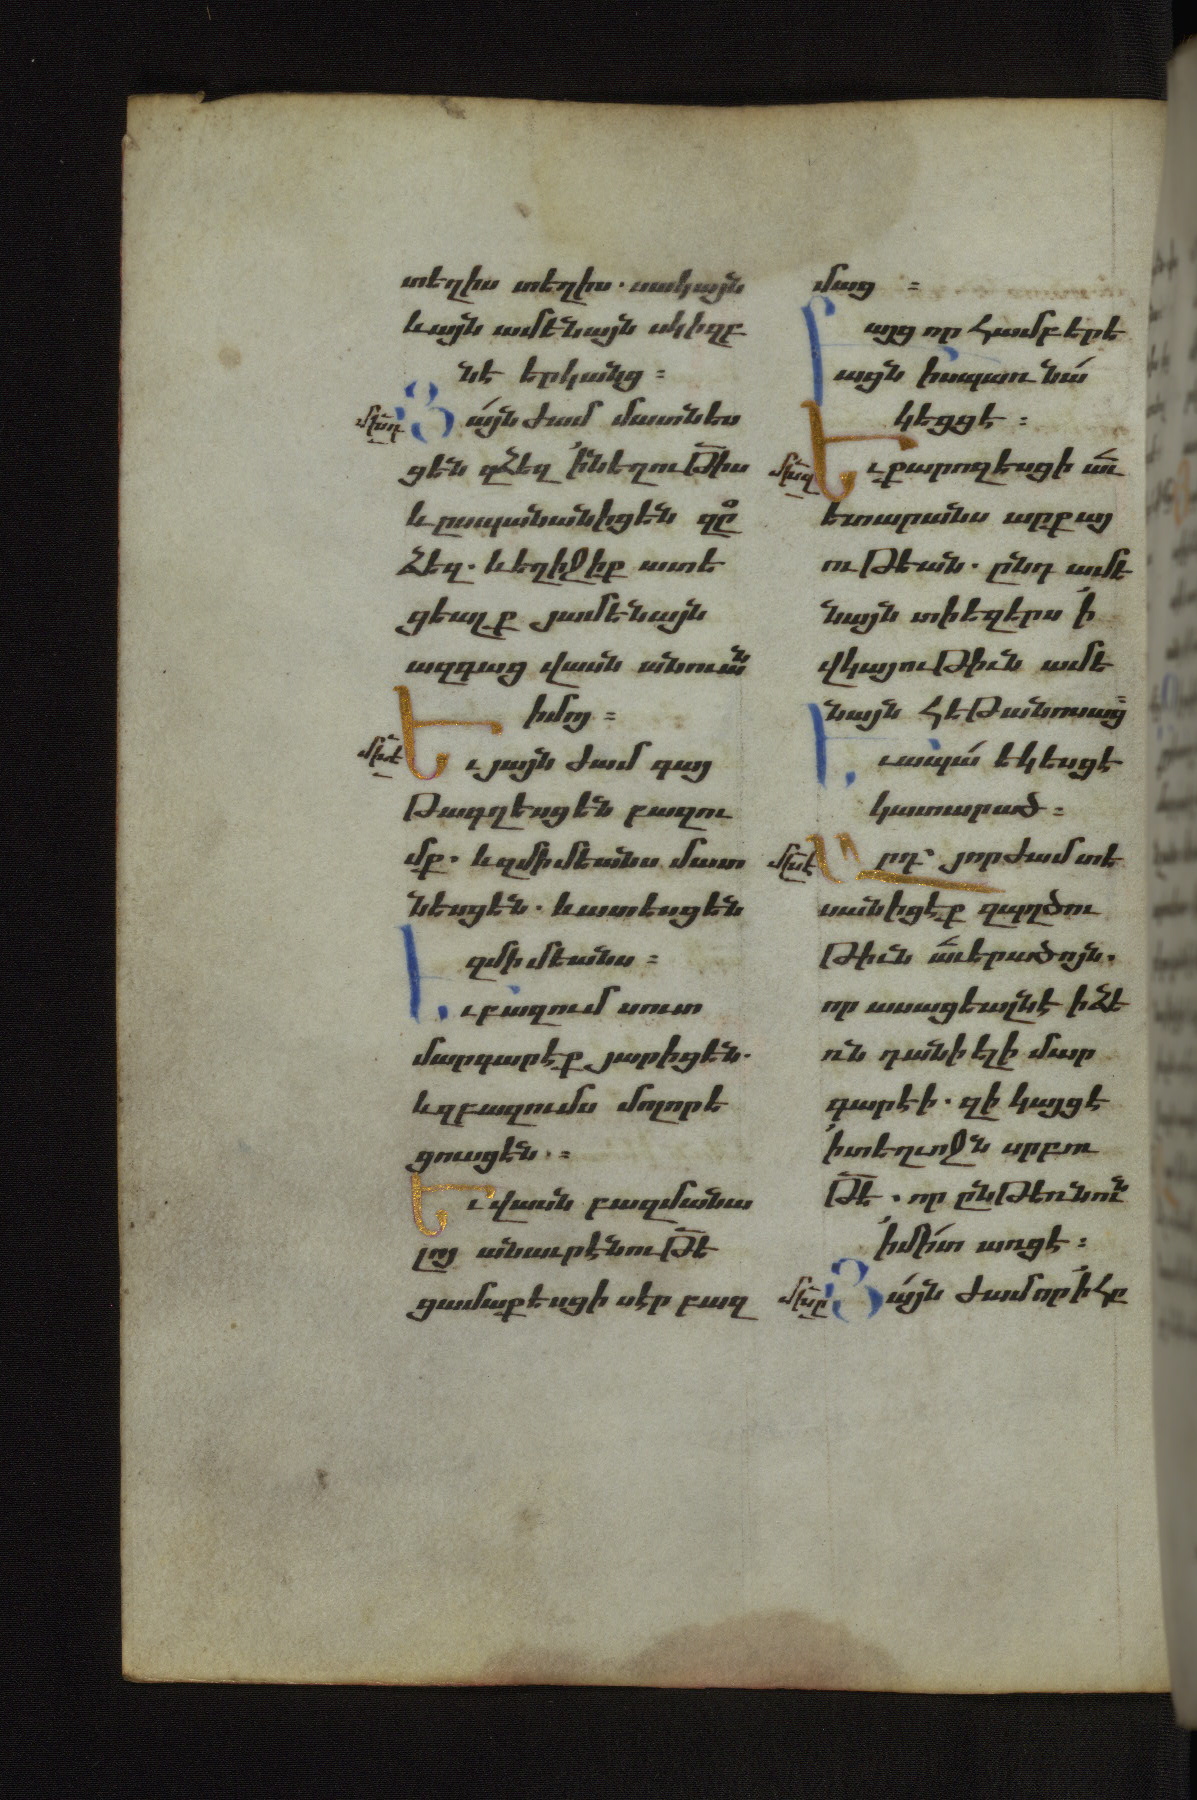 տեղիս տեղիս. սակայն
և այն ամենայն սկիզբ
նէ երկանց ։
մխդ Յայն ժամ մատնես
ցեն զձեզ ՚ինեղութիս
և սպանանիցեն
ձեզ. և եղիջիք ատե
ցեալք յամենայն
ազգաց վասն անուան
իմոյ ։
մխե Եւ յայն ժամ գայ
թագղեսցեն բազու
մք. և զմիմեանս մատ
նեսցեն. և ատեսցեն
զմիմեանս ։
Եւ բազում սուտ
մարգարէք յարիցեն.
և զբազումս մոլորե
ցուսցեն. ։
Եւ վասն բազմանա
լոյ անաւրէնութէ
ցամաքեսցի սէր բազ
մաց ։
Բայց որ համբերե
սցն իսպառ նա
կեցցե ։
մխզ Եւ քարոզեսցի աւ
ետարանս արքայ
ութեան. ընդ ամե
նայն տիեզերս ՚ի
վկայութիւն ամե
նայն հեթանոսաց
Եւ ապա եկեսցէ
կատարած ։
մխէ Արդ՝ յորժամ տե
սանիցէք զպղծու
թիւն աւերածոյն.
որ ասացեալնէ ի ձե
ռն դանիէլի մար
գարէի. զի կայցէ
՚ի տեղւոջն սրբու
թէ. որ ընթեռնուն
՚ի միտ առցէ ։
մխը Յայն ժամ որ ՚ի հր